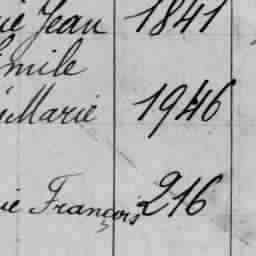 Jean 1841
Emile
Marie 1946
François 216